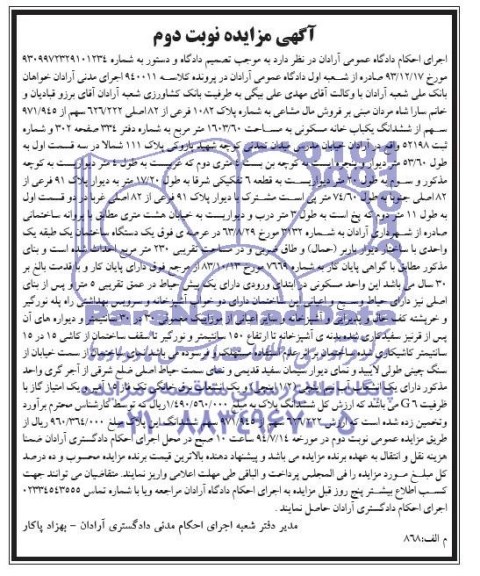 آگهی مزایده نوبت دوم
اجرای احکام دادگاه عمومی آرادان در نظر دارد به موجب تصمیم دادگاه و دستور به شماره ۹۳۰۹۹۷۲۳۲۹۱۰۱۲۳۴
مورخ ۹۳/۱۲/۱۷ صادره از شعبه اول دادگاه عمومی آرادان در پرونده کلاسه ۹۴۰۰۱۱ اجرای مدنی آرادان خواهان
بانک ملی شعبه آرادان با وکالت آقای مهدی علی بیگی به طرفیت بانک کشاورزی شعبه آرادان آقای برزو قبادیان و
خانم سارا شاه مردان مبنی بر فروش مال مشاعی به شماره پلاک ۱۰۸۲ فرعی از ۸۲ اصلی ۶۲۶/۲۲۲ سهم از ۹۷۱/۹۴۵
سهم از ششدانگ یکباب خانه مسکونی به مساحت ۱۶۰۳/۶۰ متر مربع به شماره دفتر ۳۳۴ صفحه ۳۰۲ و شماره
ثبت ۵۲۱۹۸ واقع در آرادان خیابان مدرس کوچه شهید پازوکی پلاک ۱۱۱ شمالا در سه قسمت اول به
طول ۵۳/۶۰ متر دیوار به کوچه بن بست متری دوم که غربیست به طول ۴ متر دیواریست به کوچه
مذکور و سوم به طول ۲۰ متر دیواریست به قطعه ۶ تفکیکی شرقا به طول ۱۷/۲۰ متر به دیوار پلاک ۹۱ فرعی از
۸۲ اصلی جنوبا به طول ۷۴/۶۰ متر پی است مشترک با دیوار پلاک ۹۱ فرعی از ۸۲ اصلی غربا در دو قسمت اول
به طول ۱۱ متر دوم که پخ است به طول ۳ متر درب و دیواریست به خیابان هشت متری مطابق با پروانه ساختمانی
صادره از شهرداری آرادان به شماره ۳۱۳۲ مورخ ۶۳/۸/۲۹ در عرصه ی فوق یک دستگاه ساختمان یک طبقه یک
واحدی با ساختار دیوار باربر (حمال) و طاق ضربی و در مساحت تقریبی ۲۳۰ متر مربع احداث شده است و بنای
مذکور مطابق با گواهی پایان کار به شماره ۷۶۶۹ مورخ ۸۳/۱۰/۱۳ از مرجع فوق دارای پایان کار و با قدمت بالغ بر
۳۰ سال می باشد این واحد مسکونی در ابتدای ورودی دارای یک پیش حیاط در عمق تقریبی ۵ متر و پس از بنای
اصلی نیز دارای حیاط وسیع و اعیانی این ساختمان دارای دو خواب آشپزخانه و سرویس بهداشتی راه پله نورگیر
و خرپشته کف هال و پذیرایی و آشپزخانه و سایر اعیانی از موزاییک معمولی ۳۰ در ۳۰ سانتیمتر و دیواره های آن
پس از قرنیز سفیدکاری شده بدنه ی آشپزخانه تا ارتفاع ۱۵۰ سانتیمتر و نورگیر تا سقف ساختمان از کاشی ۱۵ در ۱۵
سانتیمتر کاشیکاری شده ساختمان بر اثر عدم استفاده مستهلک و فرسوده می باشد نمای ساختمان از سمت خیابان از
سنگ چینی طولی لایبید و نمای دیوار سیمان سفید قدیمی و نمای سمت حیاط اصلی ضلع شرقی از آجر گری واحد
مذکور دارای یک انشعاب آب اینچ و یک انشعاب برق خانگی تک فاز ۱۵ آمپر و یک امتیاز گاز با
ظرفیت G6 می باشد که ارزش کل ششدانگ پلاک به مبلغ ۱/۴۹۰/۵۶۰/۰۰۰ ریال که توسط کارشناس محترم برآورد
وتخمین زده شده است که ارزش ۶۲۶/۲۲۲ سهم از ۹۷۱/۹۴۵ سهم ششدانگ این پلاک مبلغ ۹۶۰/۳۶۴/۰۰۰ ریال از
طریق مزایده عمومی نوبت دوم در مورخه ۹۴/۷/۱۴ ساعت ۱۰ صبح در محل اجرای احکام دادگستری آرادان ضمنا
هزینه نقل و انتقال به عهده برنده مزایده می باشد و پیشنهاد دهنده بالاترین قیمت برنده مزایده محسوب و ده درصد
کل مبلغ مورد مزایده را فی المجلس پرداخت و الباقی طی مهلت اعلامی واریز نمایند. متقاضیان می توانند جهت
کسب اطلاع بیشتر پنج روز قبل مزایده به اجرای احکام دادگاه آرادان مراجعه ویا با شماره تماس ۰۲۳۳۴۵۴۳۵۵۵
اجرای احکام دادگستری آرادان حاصل نمایند.
مدیر دفتر شعبه اجرای احکام مدنی دادگستری آرادان - بهزاد پاکار
م الف:۸۶۸
ParsNamadData
۰۲۱-۸۸۳۴۹۶۷۰